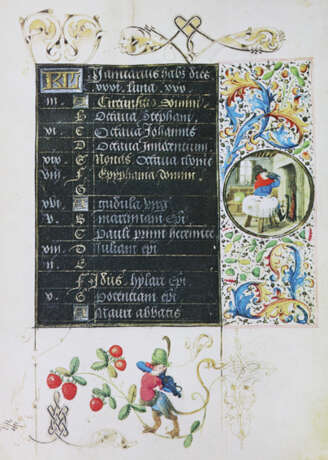 KL Januarius habz dies
xxxi. luna xxx
iii. A Circūcisio domini
b Octaua Stephani
xi. c Octaua Johannis
D Octaua Innocentum
xix. E Nonas Octaua thome
viii. F Epyphania domini
G
xvi. A Gudula virg
v. b epi
C Pauli primi heremite
xiii. D Juliani epi
ii. E
F Idus hylarii epi
x. G epi
A Mauri abbatis